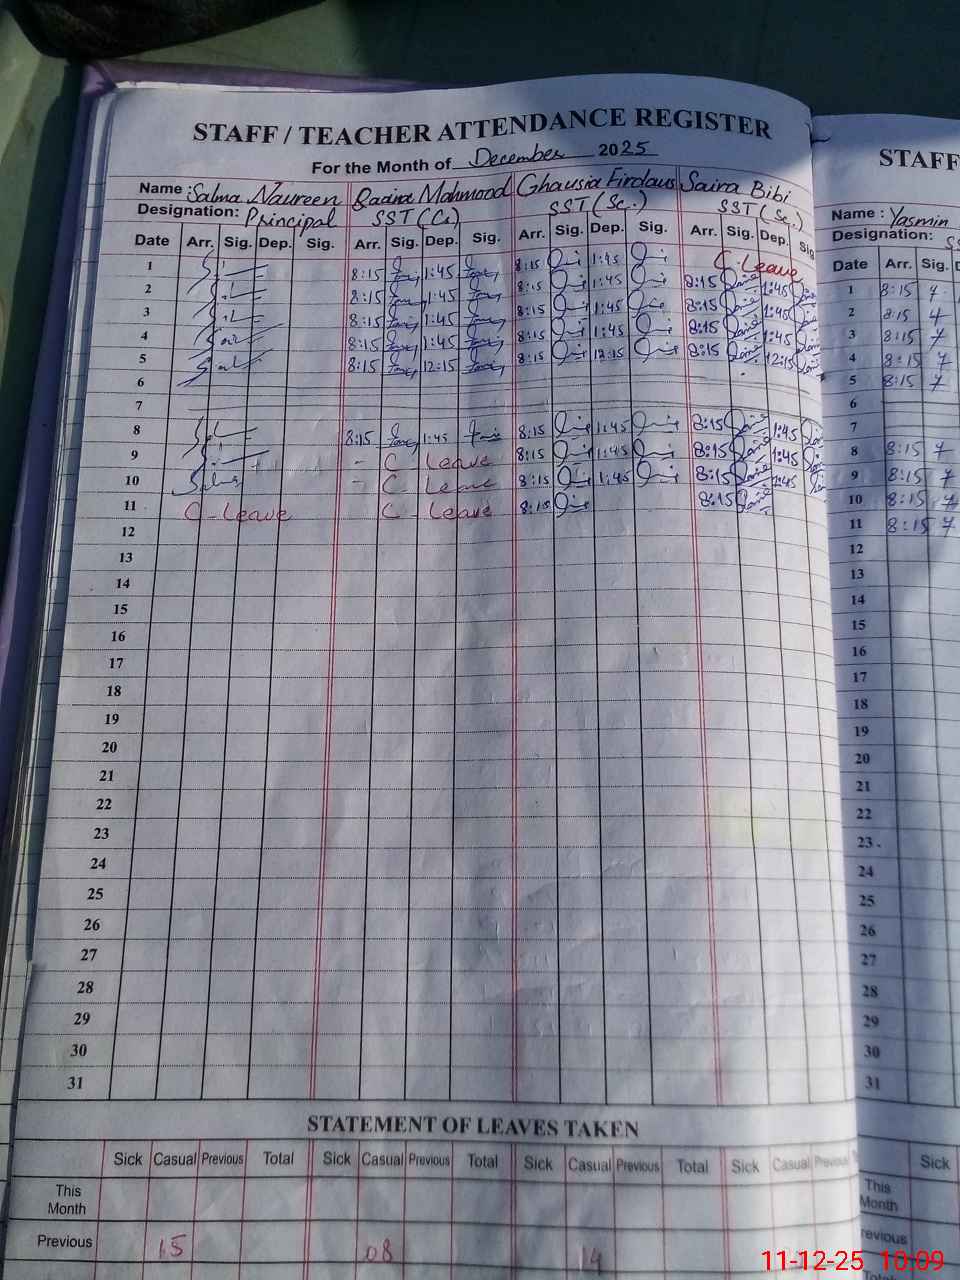 STAFF / TEACHER ATTENDANCE REGISTER
For the Month of December 2025
Name : Salma Naureen Mahmood Ghausia Firdaus Saira Bibi
Designation: Principal SST (Cs) SST (Sc.) SST (Sc.)
Date Arr. Sig. Dep. Sig. Arr. Sig. Dep. Sig. Arr. Sig. Dep. Sig. Arr. Sig. Dep. Sig
1 8:15 1:45 8:15 1:45 C-Leave
2 8:15 1:45 8:15 1:45 8:15 1:45
3 8:15 1:45 8:15 1:45 8:15 1:45
4 8:15 1:45 8:15 1:45 8:15 1:45
5 8:15 12:15 8:15 12:15 8:15 12:15
6
7
8 8:15 1:45 8:15 1:45 8:15 1:45
9 - C - Leave 8:15 1:45 8:15 1:45
10 - C - Leave 8:15 1:45 8:15 1:45
11 C - Leave C - Leave 8:15 8:15
12
13
14
15
16
17
18
19
20
21
22
23
24
25
26
27
28
29
30
31
STATEMENT OF LEAVES TAKEN
Sick Casual Previous Total Sick Casual Previous Total Sick Casual Previous Total Sick Casual
This
Month
Previous 15 08 14
STAFF
Name : Yasmin
Designation:
Date Arr. Sig.
1 8:15
2 8:15
3 8:15
4 8:15
5 8:15
6
7
8 8:15
9 8:15
10 8:15
11 8:15
12
13
14
15
16
17
18
19
20
21
22
23
24
25
26
27
28
29
30
31
Sick
This
Month
11-12-25 10:09